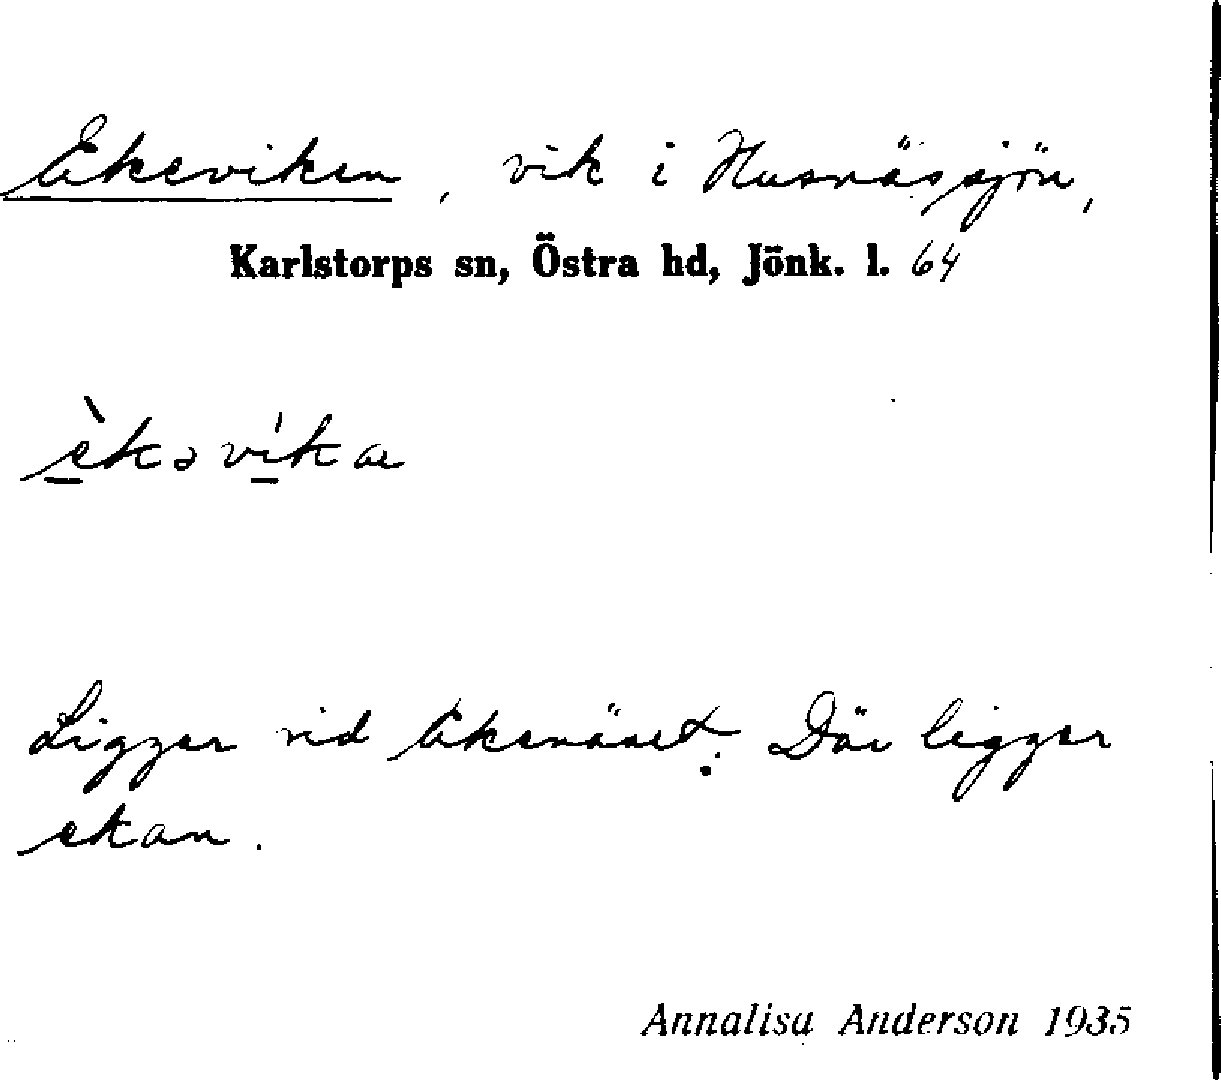 Ekeviken, vik i Husnäs sjön,
Karlstorps sn, Östra hd, Jönk. l. 64
èkəvìka
Ligger vid Ekenäset. Där ligger
ekan.
Annalisa Anderson 1935